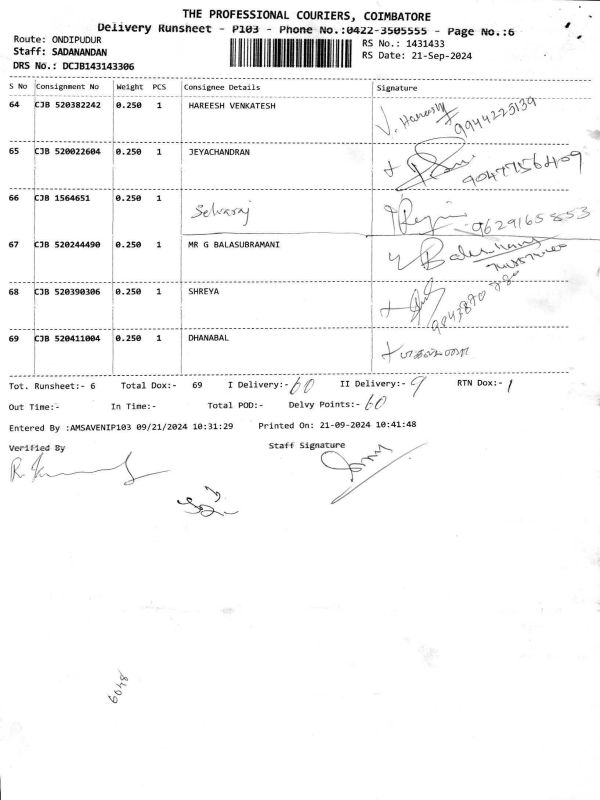 THE PROFESSIONAL COURIERS, COIMBATORE
Delivery Runsheet - P103 - Phone No.:0422-3505555 - Page No.:6
Route: ONDIPUDUR
RS No.: 1431433
Staff: SADANANDAN
RS Date: 21-Sep-2024
DRS No.: DCJB143143306
S No Consignment No Weight PCS Consignee Details Signature
64 CJB 520382242 0.250 1 HAREESH VENKATESH V. Hareesh
9944225139
65 CJB 520022604 0.250 1 JEYACHANDRAN
9047756409
66 CJB 1564651 0.250 1 Selvaraj
9629165853
67 CJB 520244490 0.250 1 MR G BALASUBRAMANI
68 CJB 520390306 0.250 1 SHREYA
69 CJB 520411004 0.250 1 DHANABAL
Tot. Runsheet:- 6 Total Dox:- 69 I Delivery:- 60 II Delivery:- 9 RTN Dox:- 1
Out Time:- In Time:- Total POD:- Delvy Points:- 60
Entered By :AMSAVENIP103 09/21/2024 10:31:29 Printed On: 21-09-2024 10:41:48
Verified By Staff Signature
6048